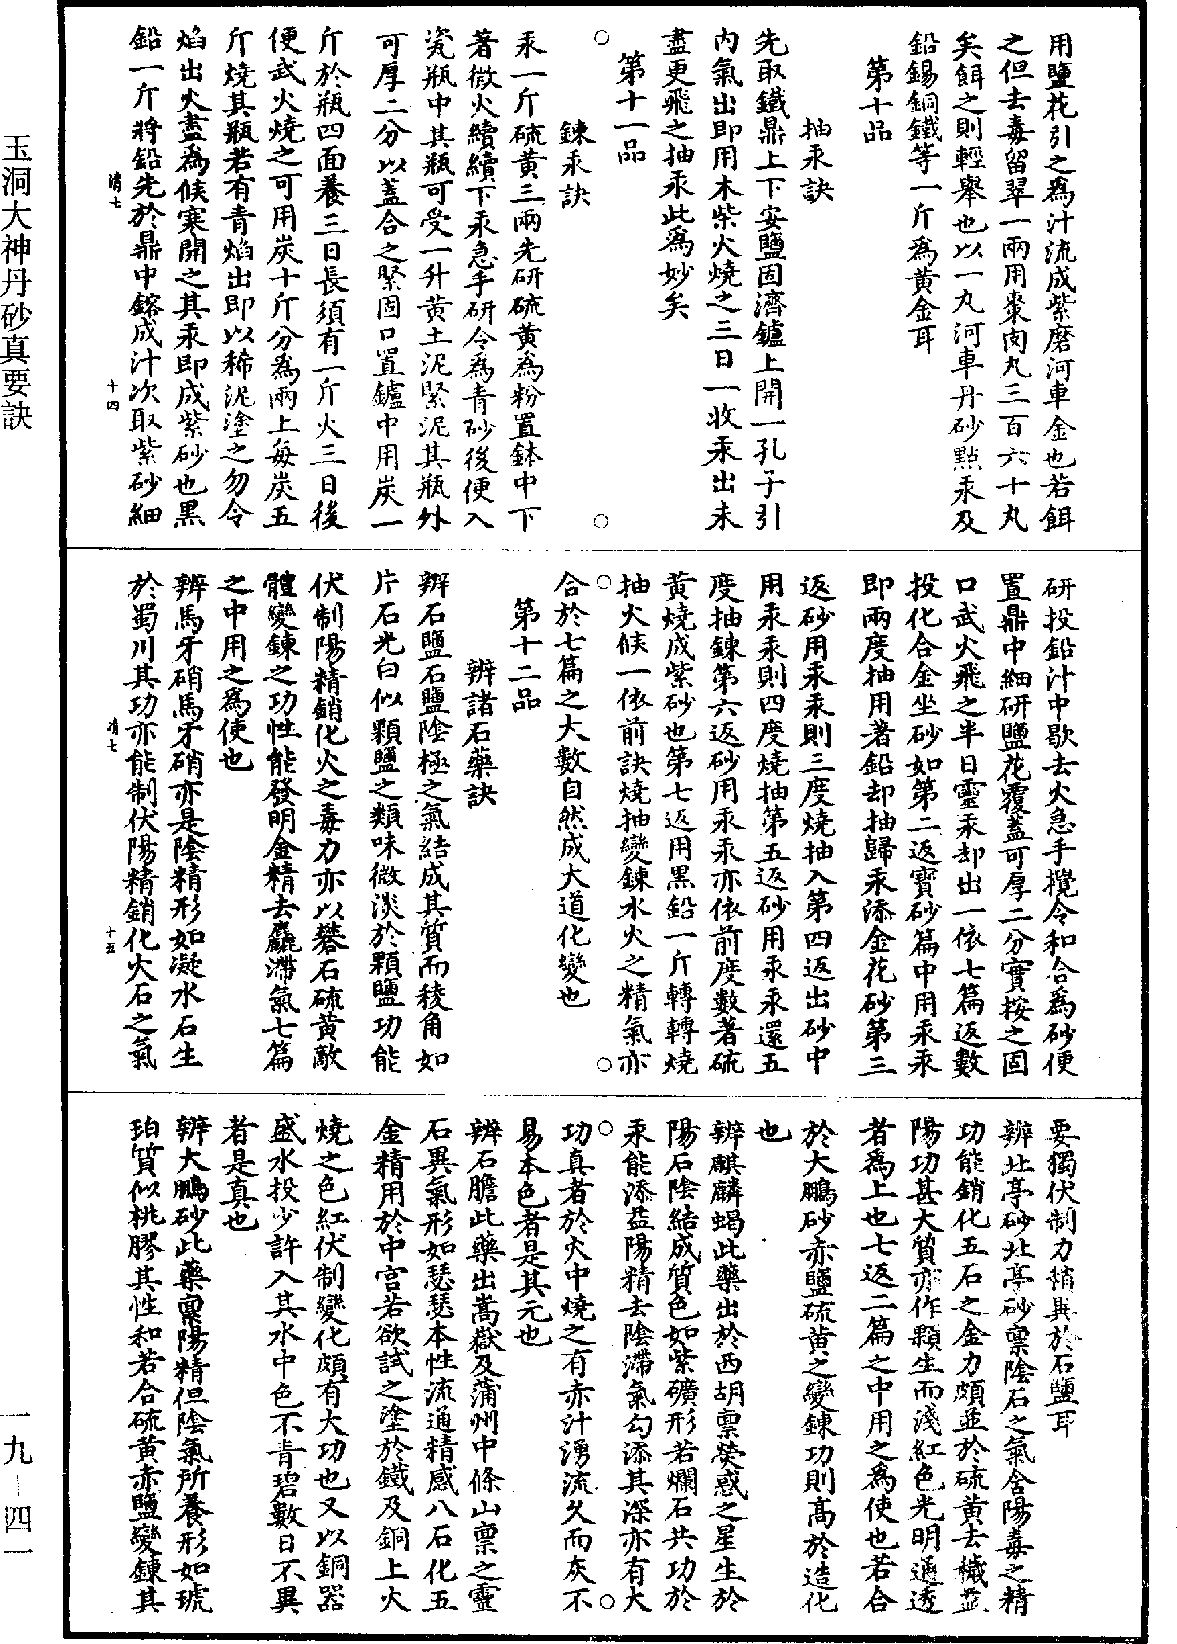 用鹽花引之為汁流成紫磨河車金也若餌
之但去毒留翠一兩用棗肉丸三百六十丸
矣餌之則輕舉也以一丸河車丹砂點汞及
鉛錫銅鐵等一斤為黃金耳
第十品
抽汞訣
先取鐵鼎上下安鹽固濟鑪上開一孔子引
內氣出即用木柴火燒之三日一收汞出未
盡更飛之抽汞此為妙矣
第十一品
鍊汞訣
汞一斤硫黃三兩先研硫黃為粉置鉢中下
著微火續續下汞急手研令為青砂後便入
瓷瓶中其瓶可受一升黃土泥緊泥其瓶外
可厚二分以蓋合之緊固口置鑪中用炭一
斤於瓶四面養三日長須有一斤火三日後
便武火燒之可用炭十斤分為兩上每炭五
斤燒其瓶若有青焰出即以稀泥塗之勿令
焰出火盡為候寒開之其汞即成紫砂也黑
鉛一斤將鉛先於鼎中鎔成汁次取紫砂細
清七
十四
研投鉛汁中歇去火急手攪令和合為砂便
置鼎中細研鹽花覆蓋可厚二分實按之固
口武火飛之半日靈汞却出一依七篇返數
投化合金坐砂如第二返寶砂篇中用汞汞
即兩度抽用著鉛却抽歸汞添金花砂第三
返砂用汞汞則三度燒抽入第四返出砂中
用汞汞則四度燒抽第五返砂用汞汞還五
度抽鍊第六返砂用汞汞亦依前度數著硫
黃燒成紫砂也第七返用黑鉛一斤轉轉燒
抽火候一依前訣燒抽變鍊水火之精氣亦
合於七篇之大數自然成大道化變也
第十二品
辨諸石藥訣
辨石鹽石鹽陰極之氣結成其質而稜角如
片石光白似顆鹽之類味微淡於顆鹽功能
伏制陽精銷化火之毒力亦以礬石硫黃敵
體變鍊之功性能發明金精去麤滯氣七篇
之中用之為使也
辨馬牙硝馬牙硝亦是陰精形如凝水石生
於蜀川其功亦能制伏陽精銷化火石之氣
清七
十五
要獨伏制力稍異於石鹽耳
辨北亭砂北亭砂稟陰石之氣含陽毒之精
功能銷化五石之金力頗並於硫黃去穢益
陽功甚大質亦作顆生而淺紅色光明通透
者為上也七返二篇之中用之為使也若合
於大鵬砂赤鹽硫黃之變鍊功則高於造化
也
辨麒麟蝎此藥出於西胡稟熒惑之星生於
陽石陰結成質色如紫礦形若爛石共功於
汞能添益陽精去陰滯氣勾添其深亦有大
功真者於火中燒之有赤汁湧流久而灰不
易本色者是其元也
辨石膽此藥出嵩嶽及蒲州中條山稟之靈
石異氣形如瑟瑟本性流通精感八石化五
金精用於中宮若欲試之塗於鐵及銅上火
燒之色紅伏制變化頗有大功也又以銅器
盛水投少許入其水中色不青碧數日不異
者是真也
辨大鵬砂此藥稟陽精但陰氣所養形如琥
珀質似桃膠其性和若合硫黃赤鹽變鍊其
玉洞大神丹砂真要訣
一九－四一